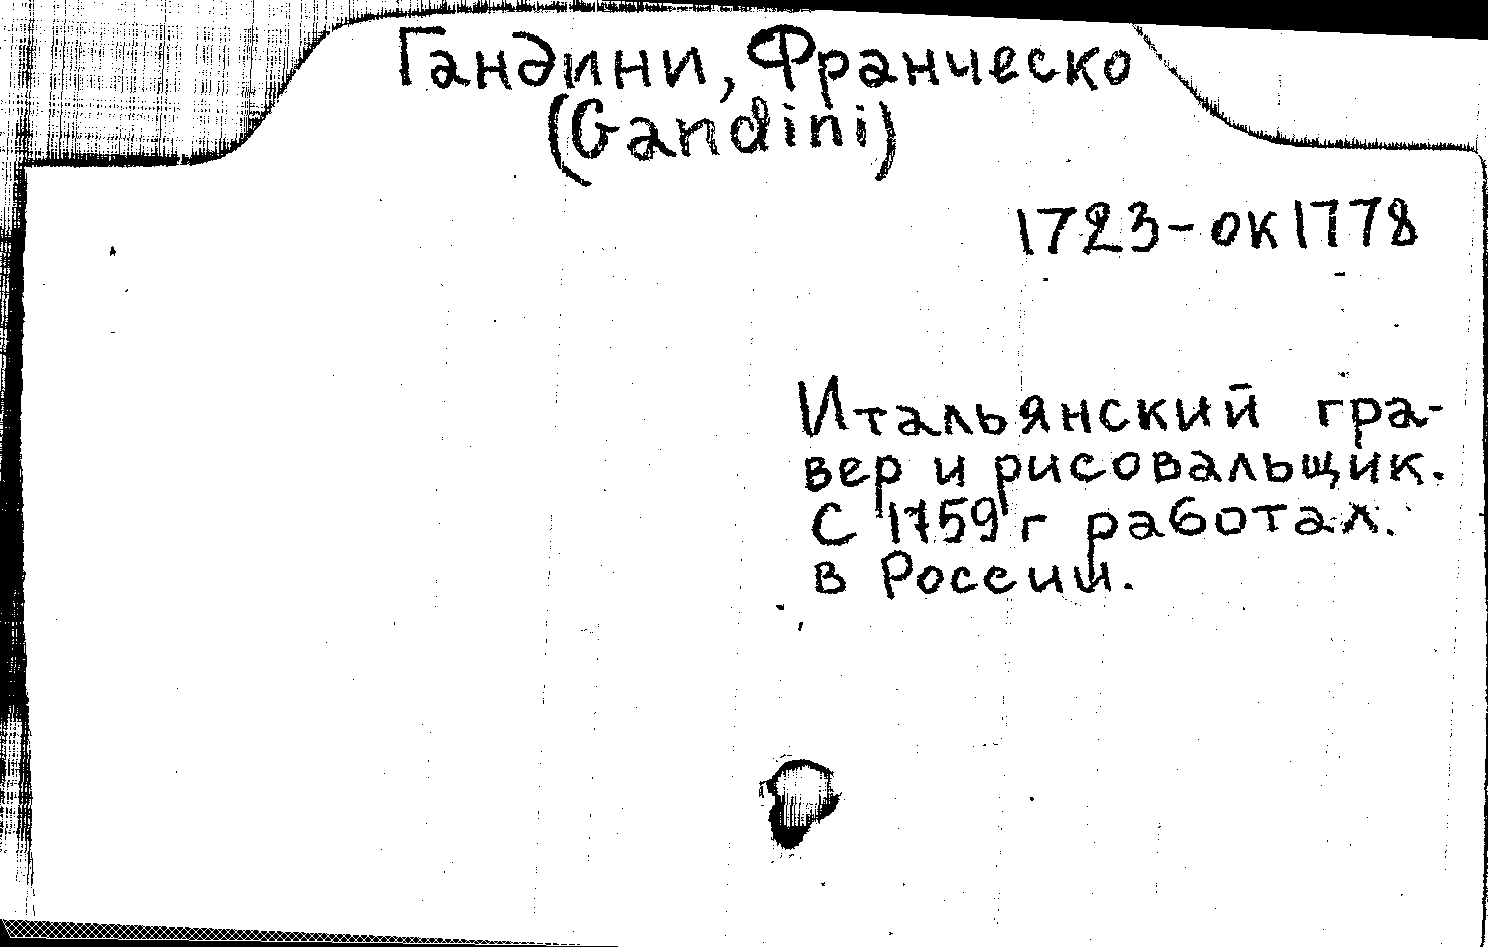 Гандини, Франческо
(Gandini)
1723-ок 1778
Итальянский гра-
вер и рисовальщик.
С 1759 г работал.
в России.